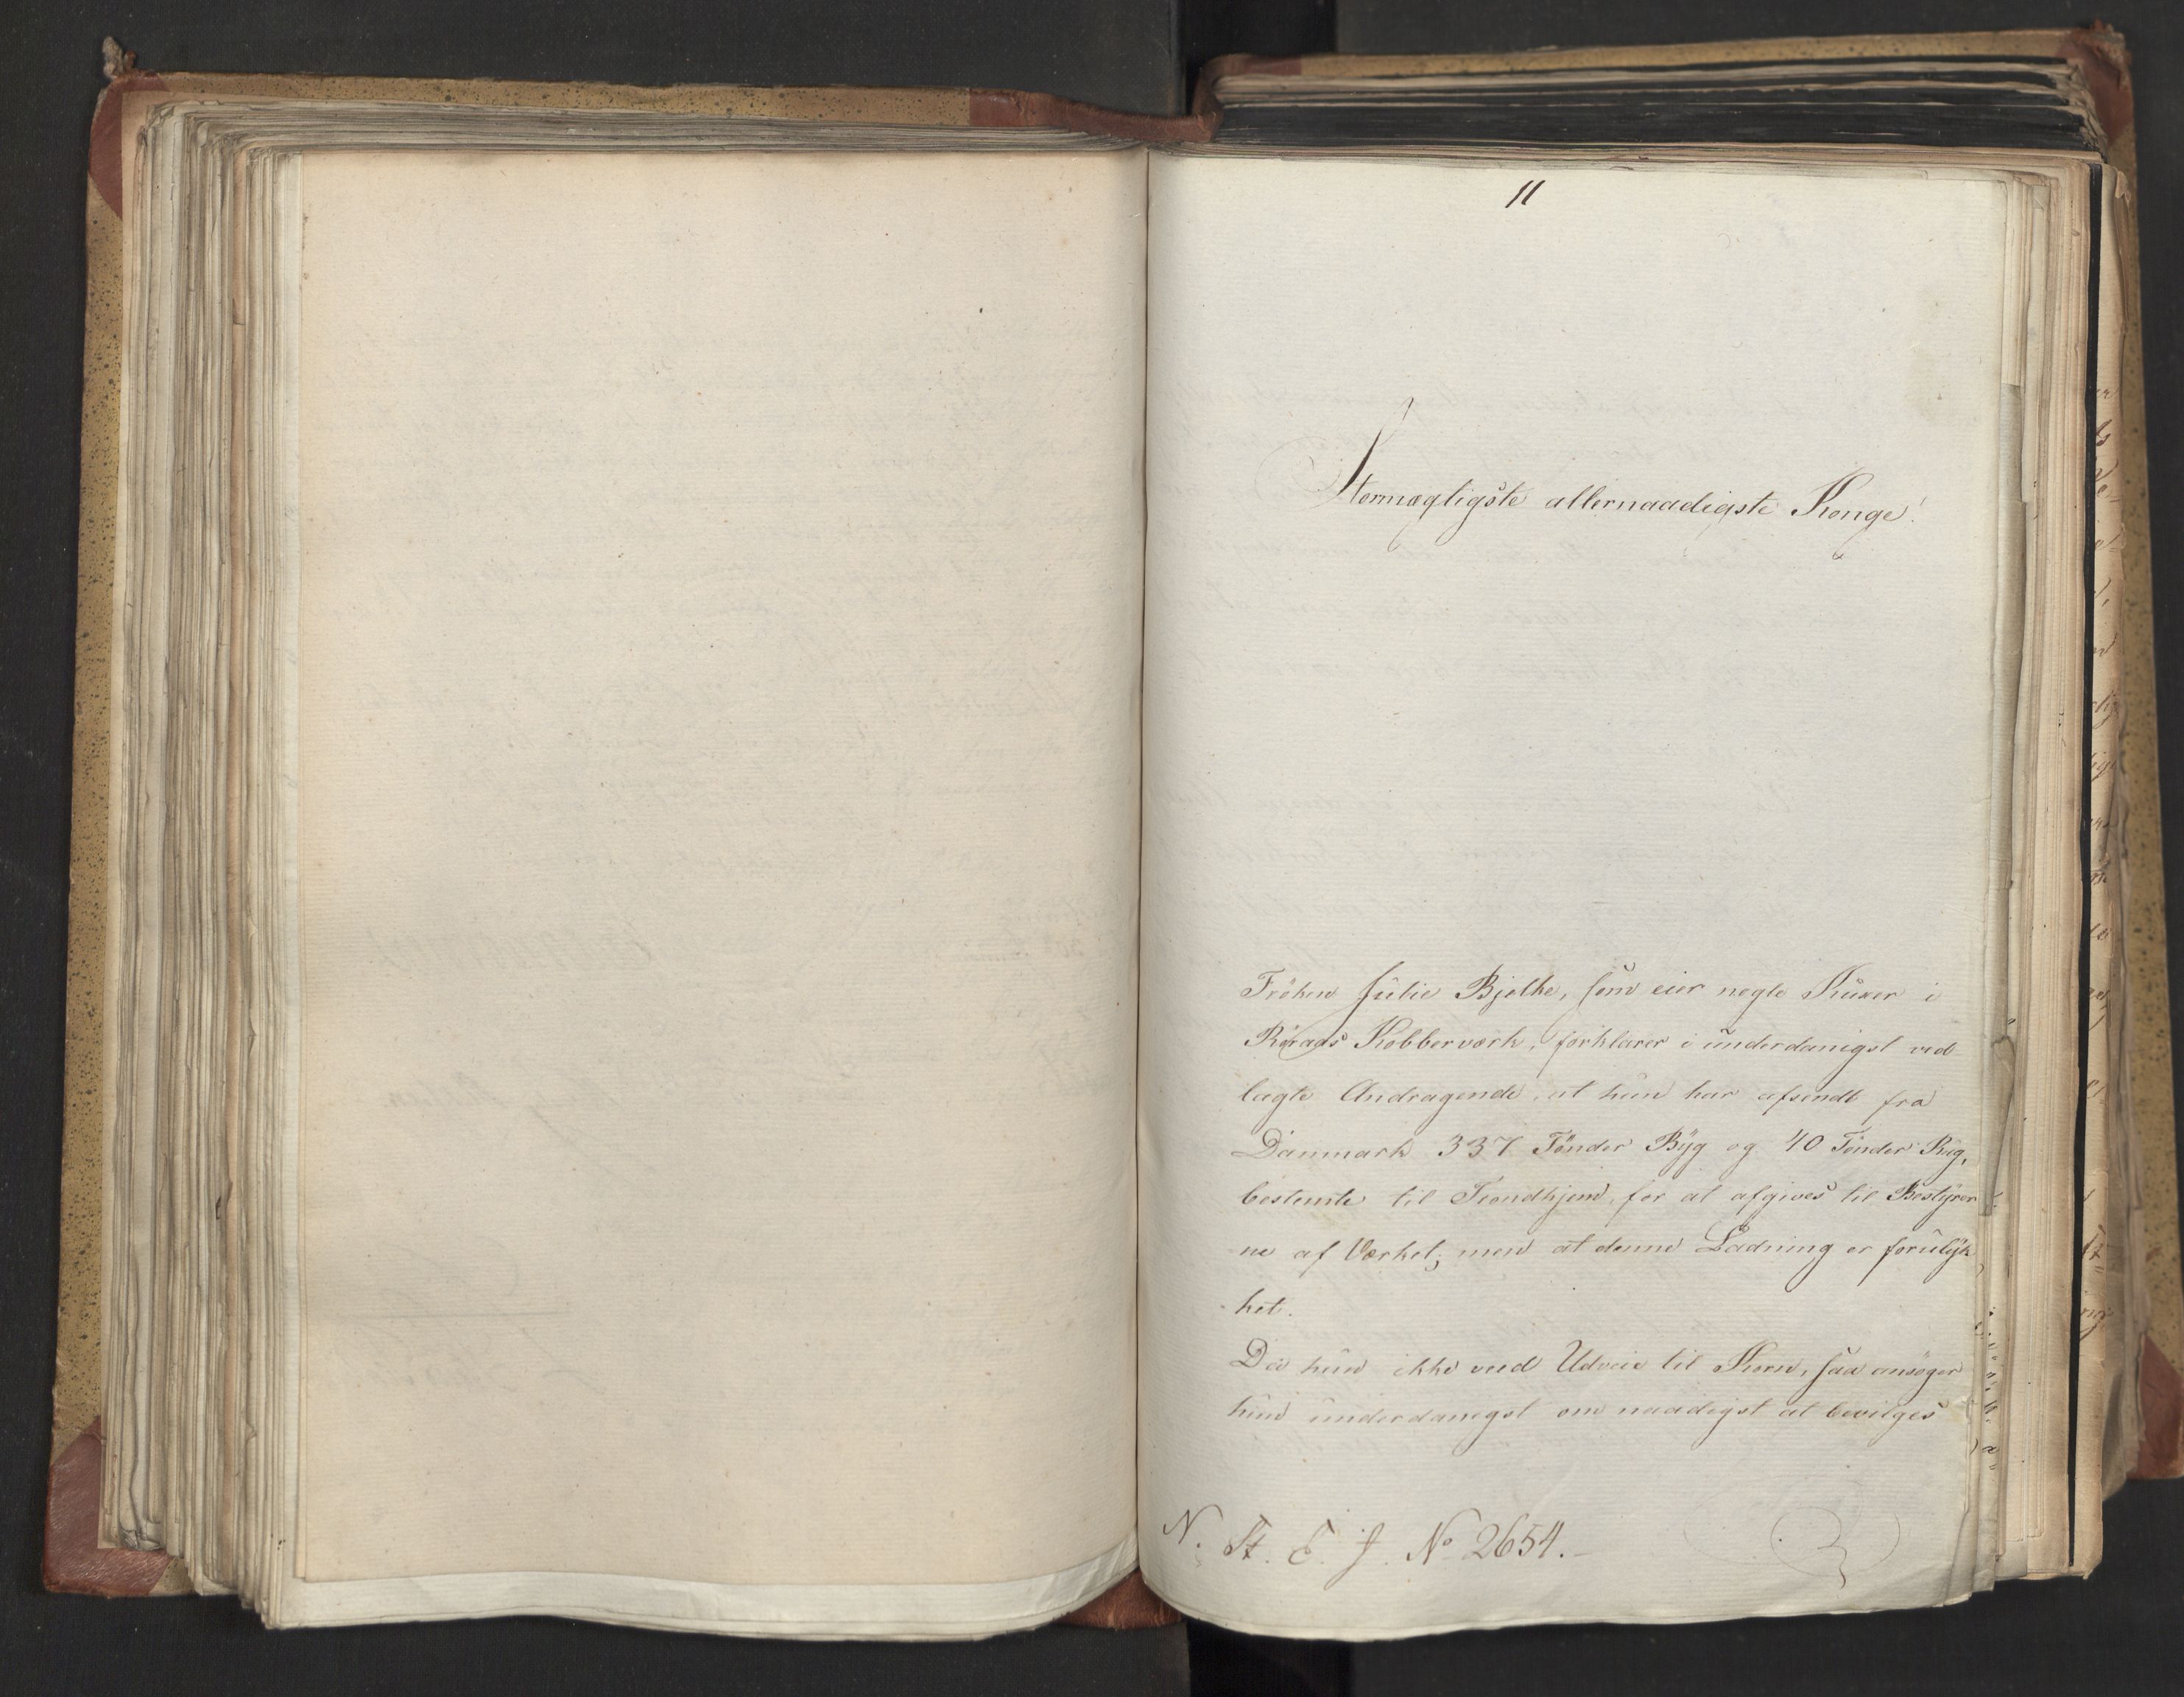 11
Stormægtigste allernaadigste Konge!
Frøken Julie Bjelke, som eier nogle Kuxer i
Røraas Kobberværk, forklarer i underdanigst ved
lagte Andragende, at hun har afsendt fra
Danmark 337 Tønder Byg og 40 Tønder Rug,
bestemte til Trondhjem for at afgives til Bestyrer
ne af Værket; men at denne Ladning er forulyk
ket.
Da hun ikke veed Udveie til Korn, saa ansøger
hun underdanigst om naadigst at bevilges
N. St. E. J. No 2654.